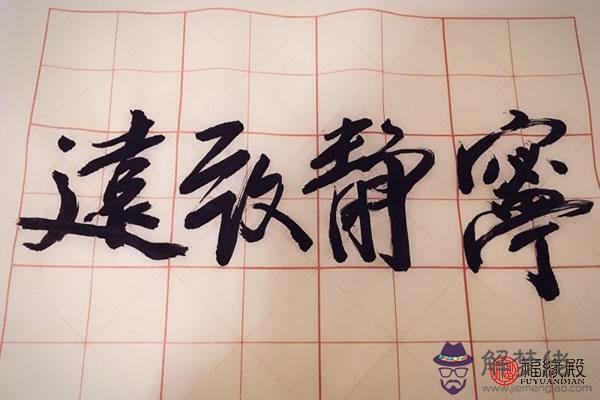 遠致静寧
解梦佬
福緣殿
FUYUANDIAN
https://www.jiemenglao.com/